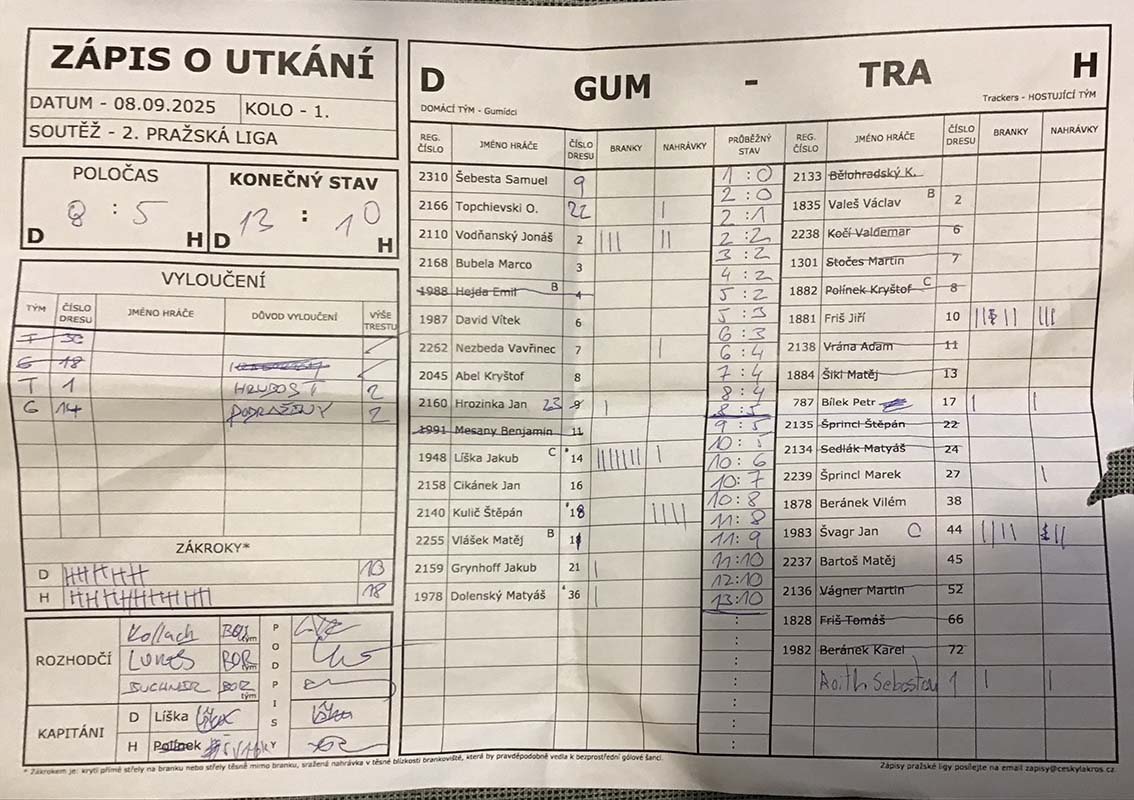 ZÁPIS O UTKÁNÍ
DATUM - 08.09.2025 KOLO - 1.
SOUTĚŽ - 2. PRAŽSKÁ LIGA
POLOČAS
8 : 5
D H
KONEČNÝ STAV
13 : 10
D H
VYLOUČENÍ
TÝM ČÍSLO DRESU JMÉNO HRÁČE DŮVOD VYLOUČENÍ VÝŠE TRESTU
T 36
G 18
T 1 HRUBOST 2
G 14 PODRAŽENÝ 2
ZÁKROKY*
D 13
H 18
ROZHODČÍ
Kollach BOR tým
LUKEŠ BOR tým
BUCHNER BOR tým
PODPISY
KAPITÁNI
D Líška Líška
H Polínek
D GUM - TRA H
DOMÁCÍ TÝM - Gumídci
Trackers - HOSTUJÍCÍ TÝM
REG. ČÍSLO JMÉNO HRÁČE ČÍSLO DRESU BRANKY NAHRÁVKY
2310 Šebesta Samuel 9
2166 Topchievski O. 22 |
2110 Vodňanský Jonáš 2 ||| ||
2168 Bubela Marco 3
1988 Hejda Emil B 4
1987 David Vítek 6
2262 Nezbeda Vavřinec 7 |
2045 Abel Kryštof 8
2160 Hrozinka Jan 23 9 |
1991 Mesany Benjamin 11
1948 Líška Jakub C 14 ||||||| |
2158 Cikánek Jan 16
2140 Kulič Štěpán 18 ||||
2255 Vlášek Matěj B 1
2159 Grynhoff Jakub 21 |
1978 Dolenský Matyáš 36 |
PRŮBĚŽNÝ STAV
1 : 0
2 : 0
2 : 1
2 : 2
3 : 2
4 : 2
5 : 2
5 : 3
6 : 3
6 : 4
7 : 4
8 : 4
8 : 5
9 : 5
10 : 5
10 : 6
10 : 7
10 : 8
11 : 8
11 : 9
11 : 10
12 : 10
13 : 10
REG. ČÍSLO JMÉNO HRÁČE ČÍSLO DRESU BRANKY NAHRÁVKY
2133 Bělohradský K.
1835 Valeš Václav B 2
2238 Kočí Valdemar 6
1301 Stočes Martin 7
1882 Polínek Kryštof C 8
1881 Friš Jiří 10 ||||| |||
2138 Vrána Adam 11
1884 Šikl Matěj 13
787 Bílek Petr 17 | |
2135 Šprincl Štěpán 22
2134 Sedlák Matyáš 24
2239 Šprincl Marek 27 |
1878 Beránek Vilém 38
1983 Švagr Jan C 44 |||| ||
2237 Bartoš Matěj 45
2136 Vágner Martin 52
1828 Friš Tomáš 66
1982 Beránek Karel 72
Roith Sebastian 1 | |
* Zákrokem je: krytí přímé střely na branku nebo střely těsně mimo branku, sražená nahrávka v těsné blízkosti brankoviště, která by pravděpodobně vedla k bezprostřední gólové šanci.
Zápisy pražské ligy posílejte na email zapisy@ceskylakros.cz.